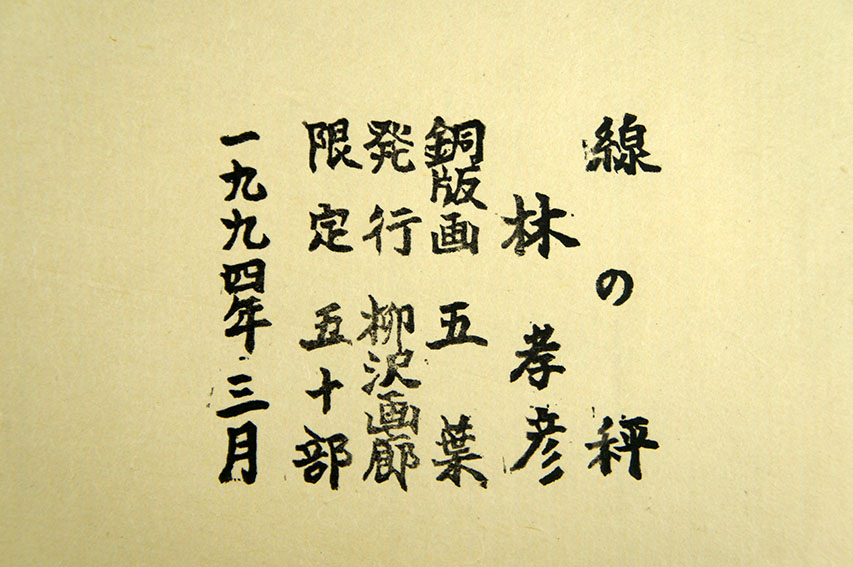 線の秤
林孝彦
銅版画 五葉
発行 柳沢画廊
限定 五十部
一九九四年三月